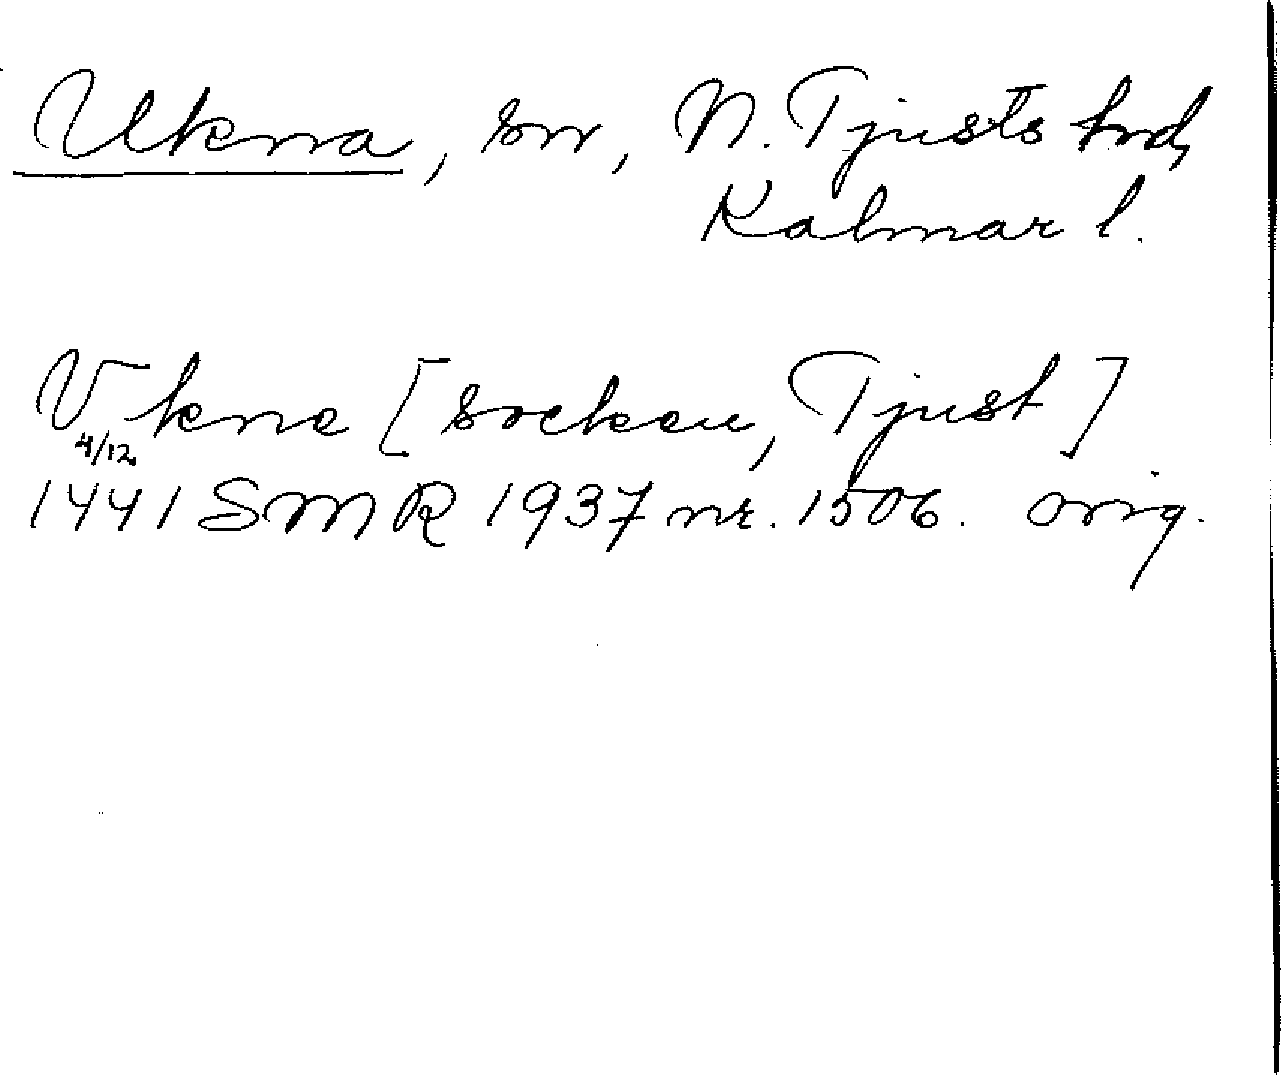 Ukna, sn, N. Tjusts hrd,
Kalmar l.
Vkne [socken, Tjust]
4/12
1441 SMR 1937 nr. 1506. orig.